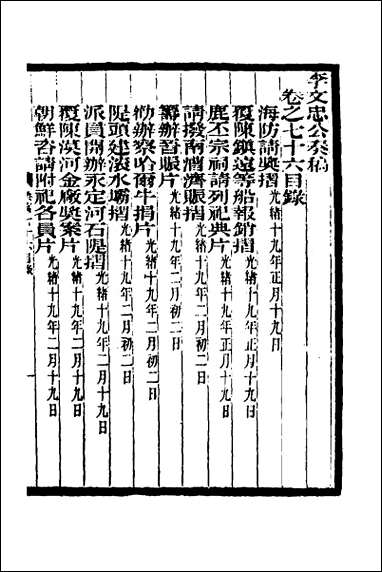 李文忠公奏稿
卷之七十六目錄
海防請奬摺 光緒十九年正月十九日
覆陳鎮遠等船報銷摺 光緒十九年正月十九日
鹿丕宗祠請列祀典片 光緒十九年正月十九日
請撥南漕濟賑摺 光緒十九年二月初二日
籌辦晉賑片 光緒十九年二月初二日
勸辦察哈爾牛捐片 光緒十九年二月初二日
隄頭建滾水壩摺 光緒十九年二月初二日
派員開辦永定河石隄摺 光緒十九年二月十九日
覆陳漠河金廠奬案片 光緒十九年二月十九日
朝鮮咨請附祀各員片 光緒十九年二月十九日